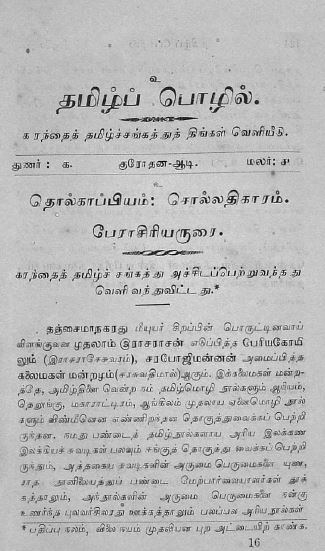 உ
தமிழ்ப் பொழில்.
கரந்தைத் தமிழ்ச்சங்கத்துத் திங்கள் வெளியீடு.
துணர்: க. குரோதன-ஆடி. மலர்: ச
உ
தொல்காப்பியம்: சொல்லதிகாரம்.
பேராசிரியருரை.
கரந்தைத் தமிழ்ச் சங்கத்து அச்சிடப்பெற்றுவந்தது
வெளி வந்துவிட்டது.*
தஞ்சைமாநகரது மீயுயர் சிறப்பின் பொருட்டினவாய்
விளங்குவன முதலாம் இராசராசன் எடுப்பித்த பெரியகோயி
லும் (இராசராசேச்வரம்), சரபோஜிமன்னன் அமைப்பித்த
கலைமகள் மன்றமும்(சரசுவதிமால்)ஆகும். இக்கலைமகள் மன்ற
த்தே, அமிழ்தினை வென்ற நம் தமிழ்மொழி நூல்களும் ஆரியம்,
தெலுங்கு, மகாராட்டிரம், ஆங்கிலம் முதலாய ஏனைமொழி நூல்
களும் விண்மீனென எண்ணிறந்தன தொகுத்துவைக்கப் பெற்றி
ருந்தன. நமது பண்டைத் தமிழ்நூல்களாய அரிய இலக்கண
இலக்கியச் சுவடிகள் பலவும் ஈங்குத் தொகுத்து வைக்கப் பெற்றி
ருந்தும், அத்தகைய சுவடிகளின் அருமை பெருமைகளை யுண
ராத பண்டை மேற்பார்வையாளர்கள்
கத்தாலும், அந்நூல்களின் அருமை பெருமைகளை நன்கு
உணர்ந்த புலவர்சிலரது ஊக்கத்தாலும் பலப்பல அரியநூல்கள்
* பதிப்பு நலம், விலை நயம் முதலியன புற அட்டையிற் காண்க.
16